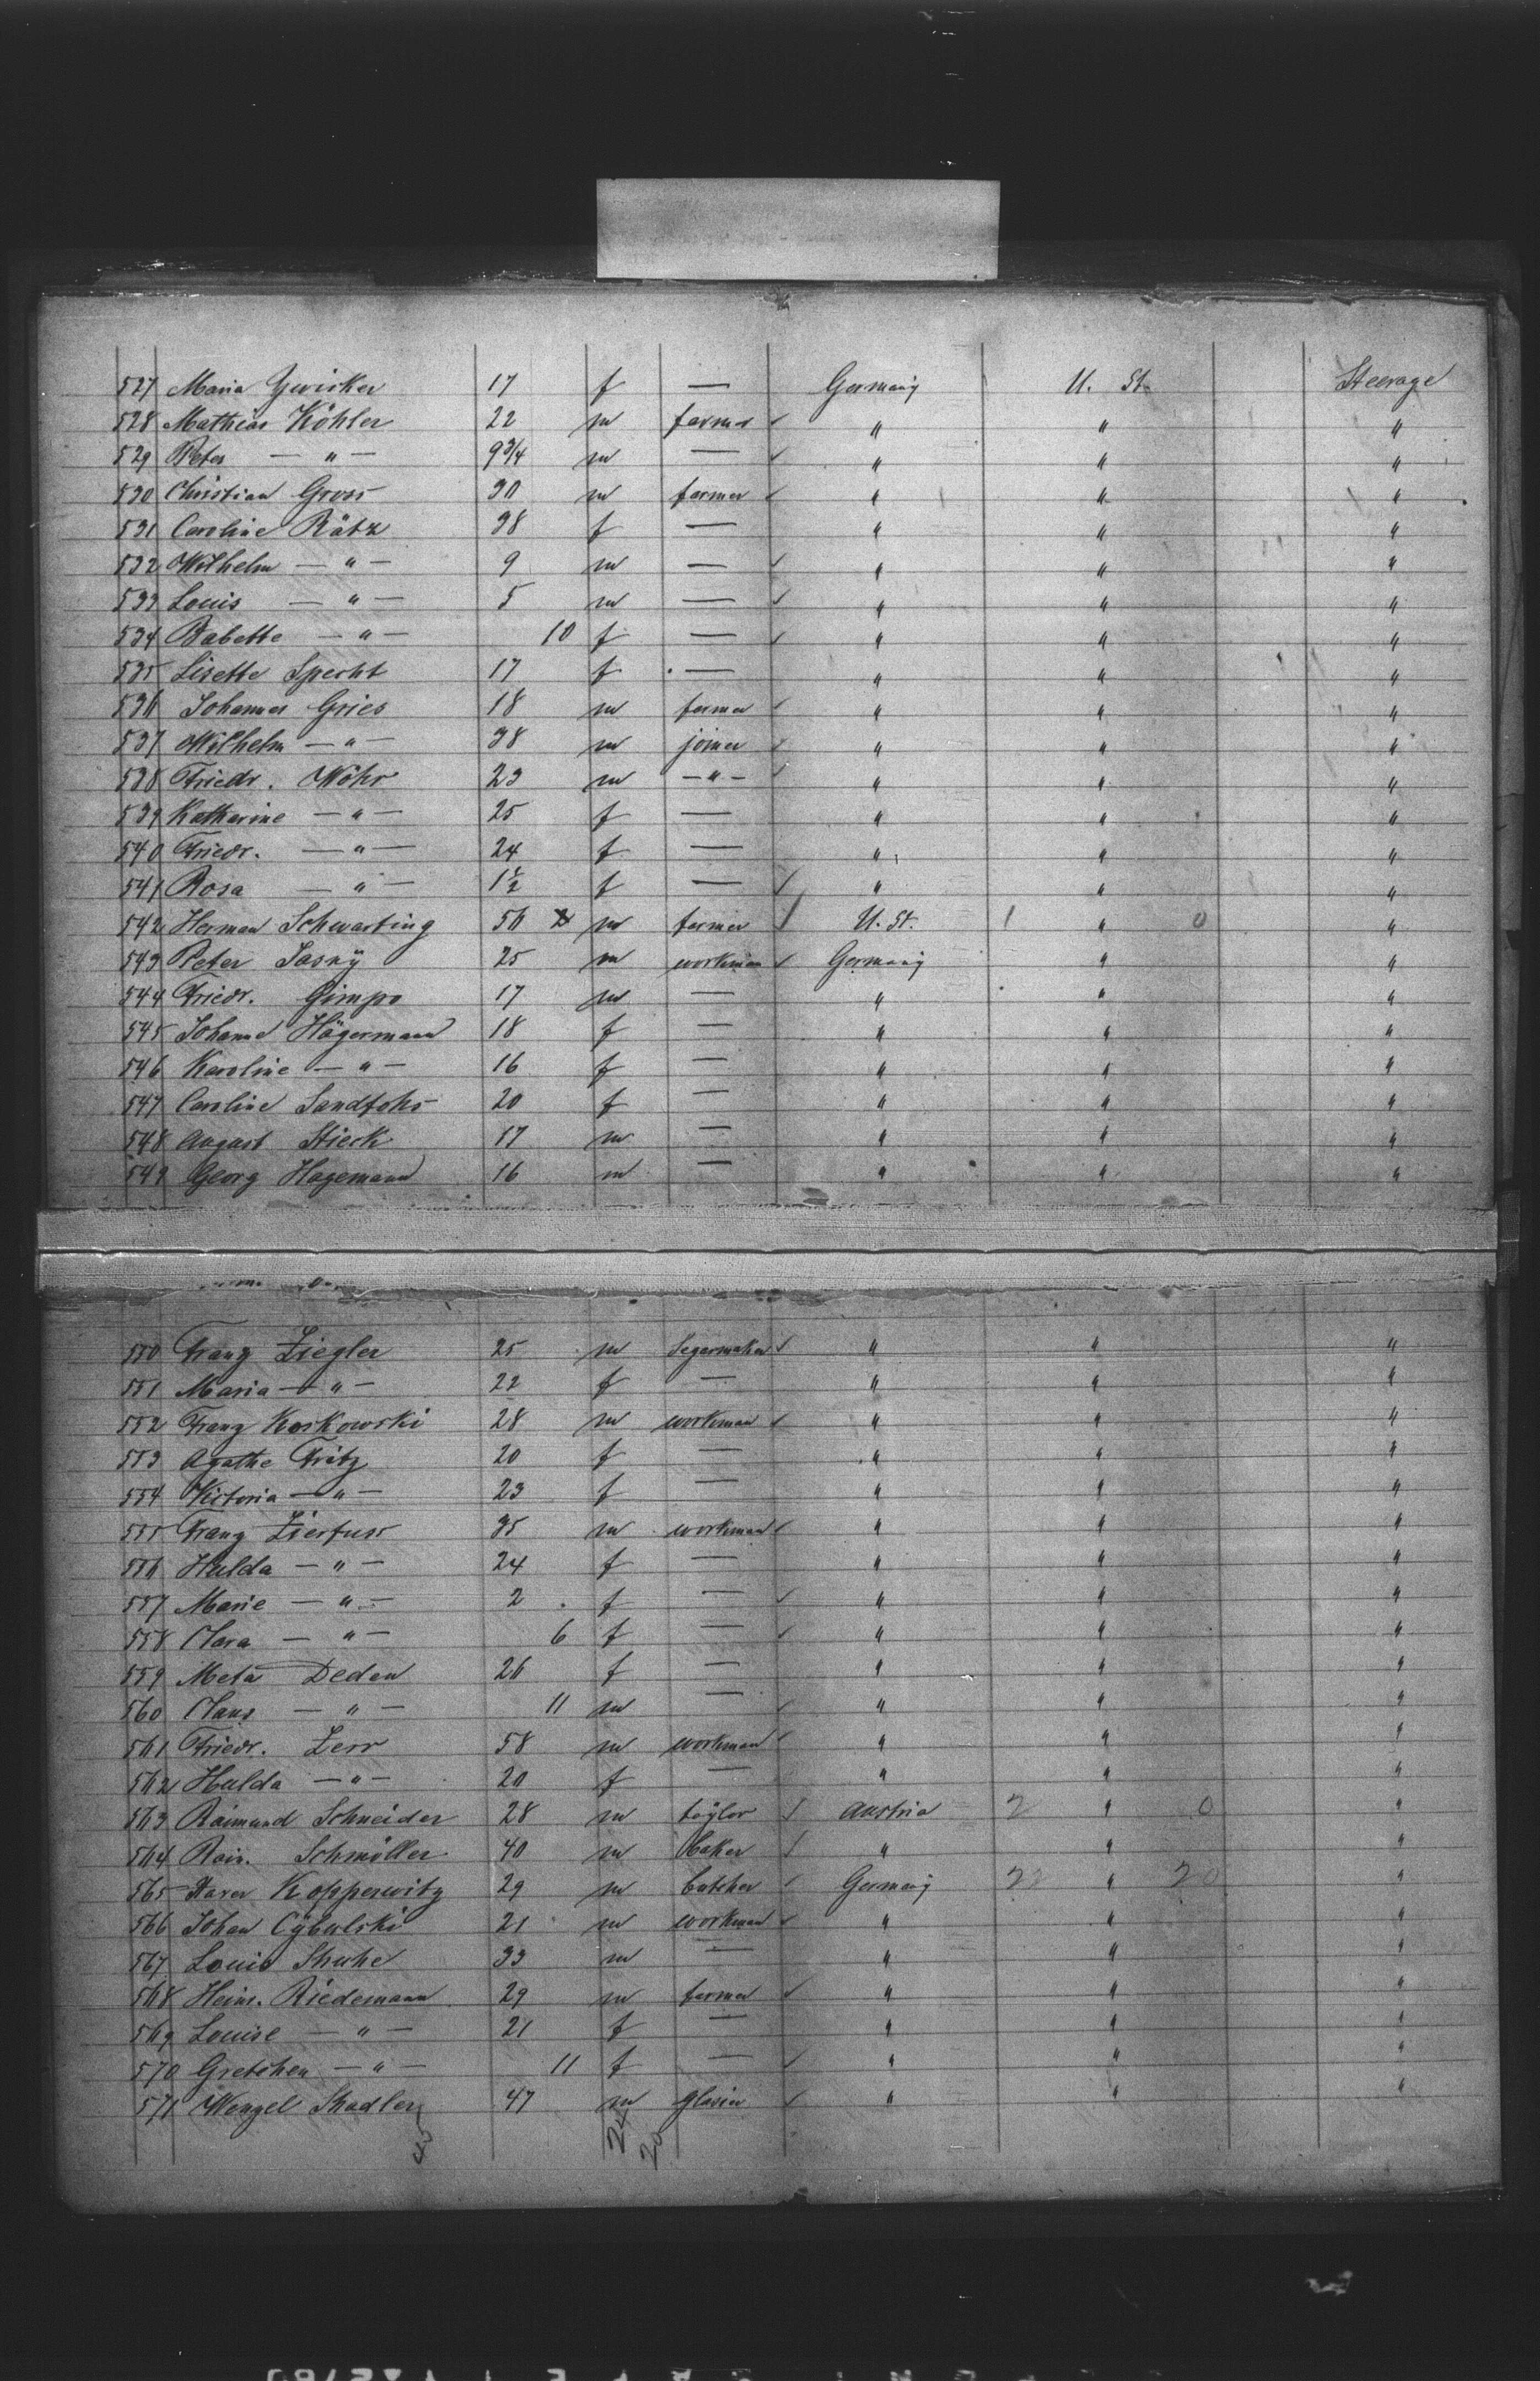 527 Maria Zwicker 17 f — Germany U. St. Steerage
528 Mathias Köhler 22 m farmer " " "
529 Peter — " — 9 3/4 m — " " "
530 Christian Gross 30 m farmer " " "
531 Caroline Rätz 38 f — " " "
532 Wilhelm — " — 9 m — " " "
533 Louis — " — 5 m — " " "
534 Babette — " — 10 f — " " "
535 Lisette Specht 17 f — " " "
536 Johannes Gries 18 m farmer " " "
537 Wilhelm — " — 38 m joiner " " "
538 Friedr. Wöhr 23 m — " — " " "
539 Katharine — " — 25 f — " " "
540 Friedr. — " — 24 f — " " "
541 Rosa — " — 1 1/2 f — " " "
542 Herman Schwarting 56 m farmer U. St. 1 " 0 "
543 Peter Jasný 25 m workman Germany " "
544 Friedr. Gimpo 17 m — " " "
545 Johanne Hägermann 18 f — " " "
546 Karoline — " — 16 f — " " "
547 Caroline Sandfohr 20 f — " " "
548 August Stieck 17 m — " " "
549 Georg Hagemann 16 m — " " "
550 Franz Ziegler 25 m Segarmaker " " "
551 Maria — " — 22 f — " " "
552 Franz Koskowski 28 m workman " " "
553 Agathe Fritz 20 f — " " "
554 Victoria — " — 23 f — " " "
555 Franz Zierfuss 35 m workman " " "
556 Hulda — " — 24 f — " " "
557 Marie — " — 2 f — " " "
558 Clara — " — 6 f — " " "
559 Meta Deden 26 f — " " "
560 Claus — " — 11 m — " " "
561 Friedr. Zerr 58 m workman " " "
562 Hulda — " — 20 f — " " "
563 Raimund Schneider 28 m taylor Austria 2 " 0 "
564 Rain. Schmöller 40 m baker " " "
565 Xaver Kopperwitz 29 m butcher Germany 22 " 20 "
566 Johan Cybulski 21 m workman " " "
567 Louis Shuhe 33 m — " " "
568 Heinr. Riedemann 29 m farmer " " "
569 Louise — " — 21 f — " " "
570 Gretchen — " — 11 f — " " "
571 Wenzel Stadler 47 m glasier " " "
45 24 20